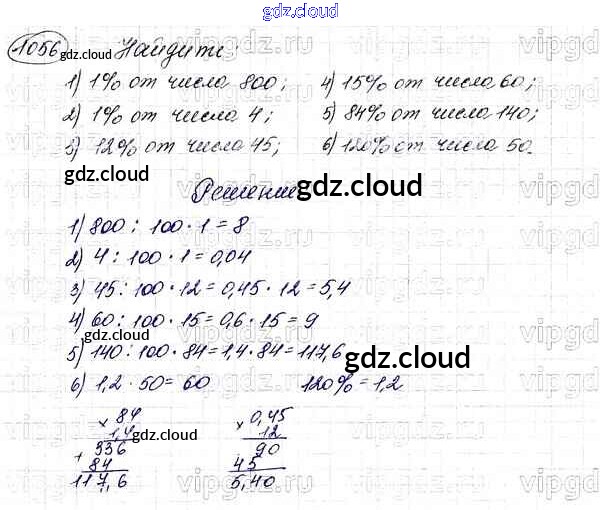 gdz.cloud
1056 gdz.cloud Найдите:
1) 1% от числа 800; 4) 15% от числа 60;
2) 1% от числа 4; 5) 84% от числа 140;
3) 12% от числа 45; 6) 120% от числа 50.
gdz.cloud
Решение gdz.cloud
1) 800 : 100 · 1 = 8
2) 4 : 100 · 1 = 0,04
3) 45 : 100 · 12 = 0,45 · 12 = 5,4
4) 60 : 100 · 15 = 0,6 · 15 = 9
5) 140 : 100 · 84 = 1,4 · 84 = 117,6
gdz.cloud
6) 1,2 · 50 = 60 120% = 1,2
gdz.cloud
× 84 × 0,45
1,4 12
gdz.cloud gdz.cloud
+ 336 90
84 45
117,6 5,40
vipgdz.ru